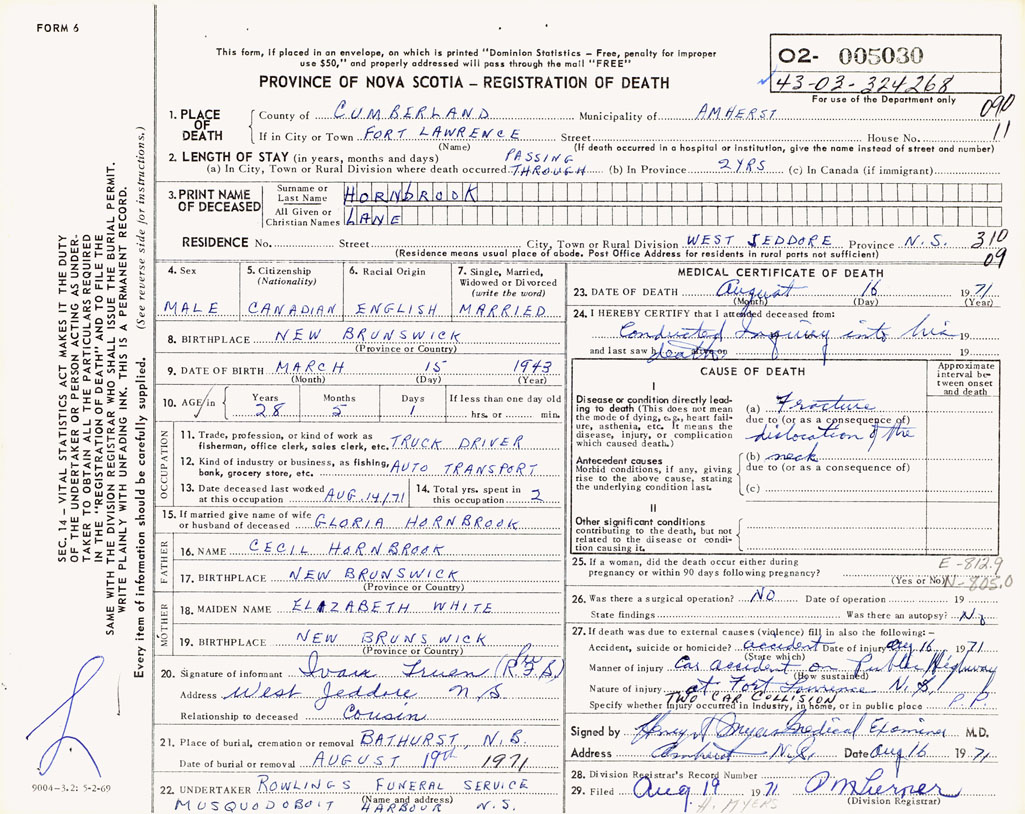 FORM 6
This form, if placed in an envelope, on which is printed "Dominion Statistics – Free, penalty for improper
use $50," and properly addressed will pass through the mail "FREE"
PROVINCE OF NOVA SCOTIA – REGISTRATION OF DEATH
02- 005030
43-03-324268
For use of the Department only
090
11
1. PLACE OF DEATH
County of CUMBERLAND Municipality of AMHERST
If in City or Town FORT LAWRENCE Street House No.
(Name) (If death occurred in a hospital or institution, give the name instead of street and number)
2. LENGTH OF STAY (in years, months and days) PASSING
(a) In City, Town or Rural Division where death occurred THROUGH (b) In Province 2 YRS (c) In Canada (if immigrant)
3. PRINT NAME OF DECEASED
Surname or Last Name HORNBROOK
All Given or Christian Names LANE
RESIDENCE No. Street City, Town or Rural Division WEST JEDDORE Province N.S. 310
(Residence means usual place of abode. Post Office Address for residents in rural parts not sufficient) 09
4. Sex MALE
5. Citizenship (Nationality) CANADIAN
6. Racial Origin ENGLISH
7. Single, Married, Widowed or Divorced (write the word) MARRIED
8. BIRTHPLACE NEW BRUNSWICK
(Province or Country)
9. DATE OF BIRTH MARCH 15 1943
(Month) (Day) (Year)
10. AGE in Years Months Days If less than one day old
28 5 1 hrs. or min.
OCCUPATION
11. Trade, profession, or kind of work as
fisherman, office clerk, sales clerk, etc. TRUCK DRIVER
12. Kind of industry or business, as fishing,
bank, grocery store, etc. AUTO TRANSPORT
13. Date deceased last worked at this occupation AUG 14/71
14. Total yrs. spent in this occupation 2
15. If married give name of wife
or husband of deceased GLORIA HORNBROOK
FATHER
16. NAME CECIL HORNBROOK
17. BIRTHPLACE NEW BRUNSWICK
(Province or Country)
MOTHER
18. MAIDEN NAME ELIZABETH WHITE
19. BIRTHPLACE NEW BRUNSWICK
(Province or Country)
20. Signature of informant
Address West Jeddore N.S.
Relationship to deceased Cousin
21. Place of burial, cremation or removal BATHURST, N.B.
Date of burial or removal AUGUST 19th 1971
22. UNDERTAKER ROWLINGS FUNERAL SERVICE
(Name and address)
MUSQUODOBOIT HARBOUR N.S.
MEDICAL CERTIFICATE OF DEATH
23. DATE OF DEATH August 16 1971
(Month) (Day)
24. I HEREBY CERTIFY that I attended deceased from:
Conducted Inquiry into his 19
and last saw h alive on death 19
CAUSE OF DEATH
Approximate interval between onset and death
I
Disease or condition directly leading to death (This does not mean the mode of dying, e.g., heart failure, asthenia, etc. It means the disease, injury, or complication which caused death.)
(a) Fracture
due to (or as a consequence of)
dislocation of the
Antecedent causes
Morbid conditions, if any, giving rise to the above cause, stating the underlying condition last.
(b) neck
due to (or as a consequence of)
(c)
II
Other significant conditions
contributing to the death, but not related to the disease or condition causing it.
25. If a woman, did the death occur either during
pregnancy or within 90 days following pregnancy?
(Yes or No)
E-812.9
N-805.0
26. Was there a surgical operation? NO Date of operation 19
State findings Was there an autopsy? No
27. If death was due to external causes (violence) fill in also the following:–
Accident, suicide or homicide? accident Date of injury Aug 16, 1971
(State which)
Manner of injury Car accident on Public Highway
(How sustained)
Nature of injury at Fort Lawrence N.S.
TWO CAR COLLISION
Specify whether injury occurred in industry, in home, or in public place P.P.
Signed by Medical Examiner M.D.
Address Amherst N.S. Date Aug 16 1971
28. Division Registrar's Record Number
29. Filed Aug 19 1971
(Division Registrar)
H. MYERS
SEC. 14 – VITAL STATISTICS ACT MAKES IT THE DUTY
OF THE UNDERTAKER OR PERSON ACTING AS UNDER-
TAKER TO OBTAIN ALL THE PARTICULARS REQUIRED
IN THE "REGISTRATION OF DEATH" AND TO FILE THE
SAME WITH THE DIVISION REGISTRAR WHO SHALL ISSUE THE BURIAL PERMIT.
WRITE PLAINLY WITH UNFADING INK. THIS IS A PERMANENT RECORD.
Every item of information should be carefully supplied. (See reverse side for instructions.)
9004-3.2: 5-2-69